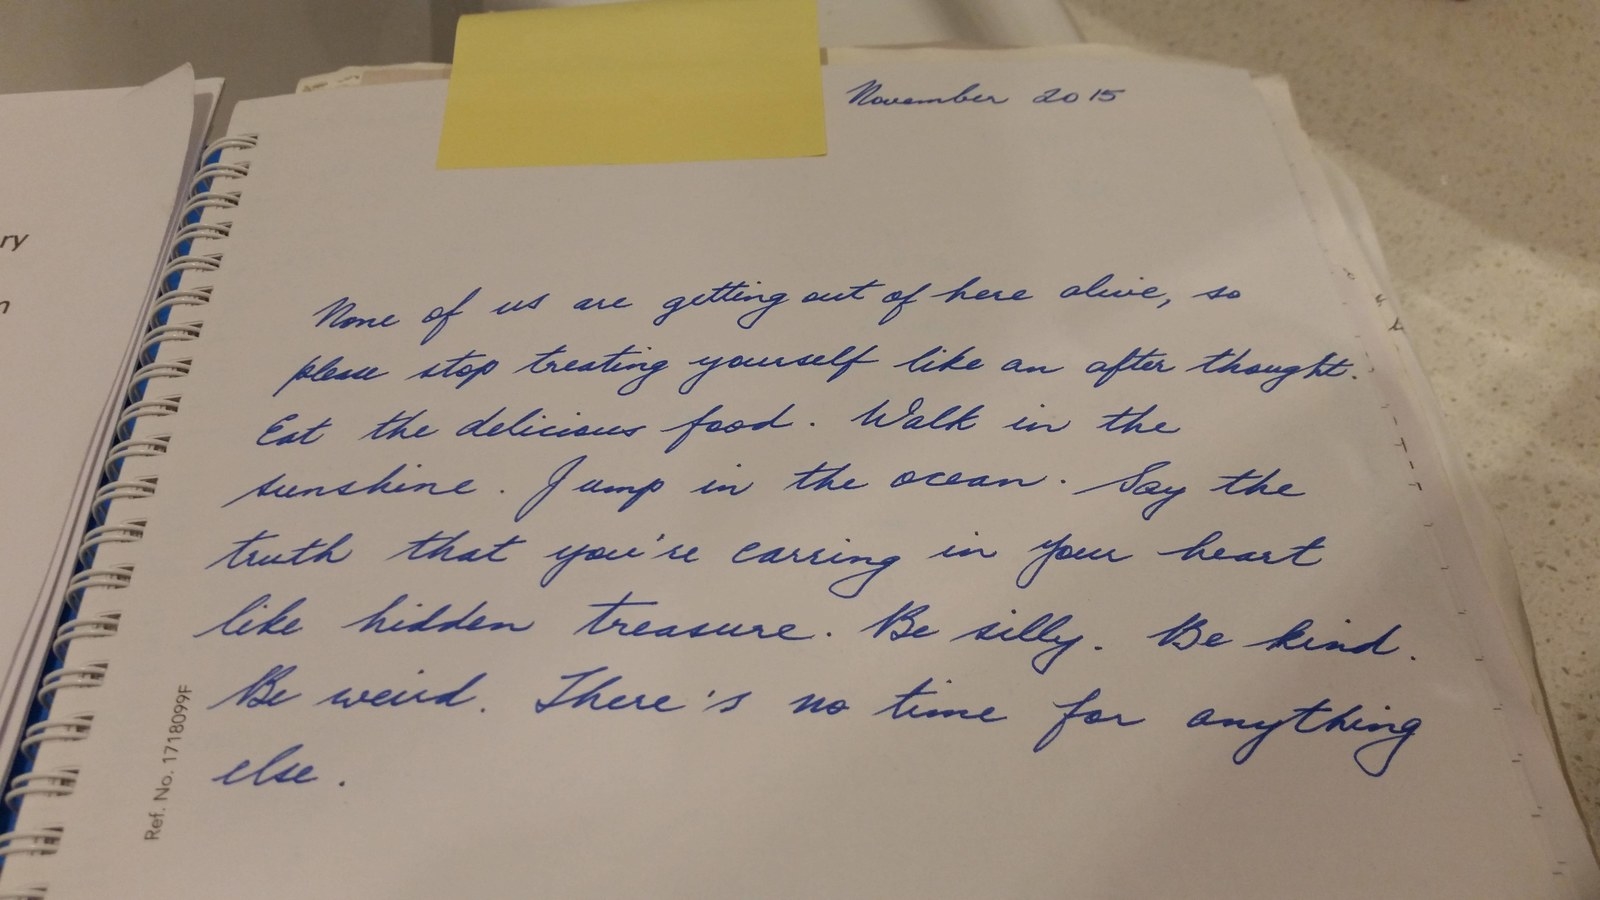 ry
n
November 2015
None of us are getting out of here alive, so
please stop treating yourself like an after thought.
Eat the delicious food. Walk in the
sunshine. Jump in the ocean. Say the
truth that you're carring in your heart
like hidden treasure. Be silly. Be kind.
Be weird. There's no time for anything
else.
Ref. No. 1718099F